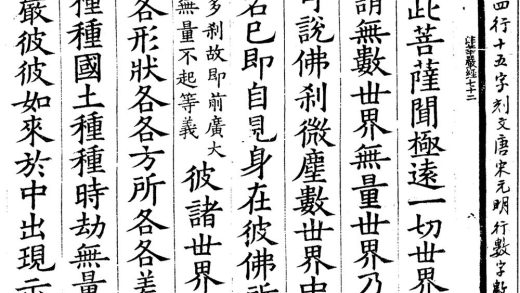 四行十五字刻文唐宋元明行數字數
此菩薩聞極遠一切世界
謂無數世界無量世界乃
可說佛刹微塵數世界中
名已即自見身在彼佛所
多刹故即前廣大
無量不起等義
彼諸世界
各形狀各各方所各各差
種種國土種種時劫無量
嚴彼彼如來於中出現